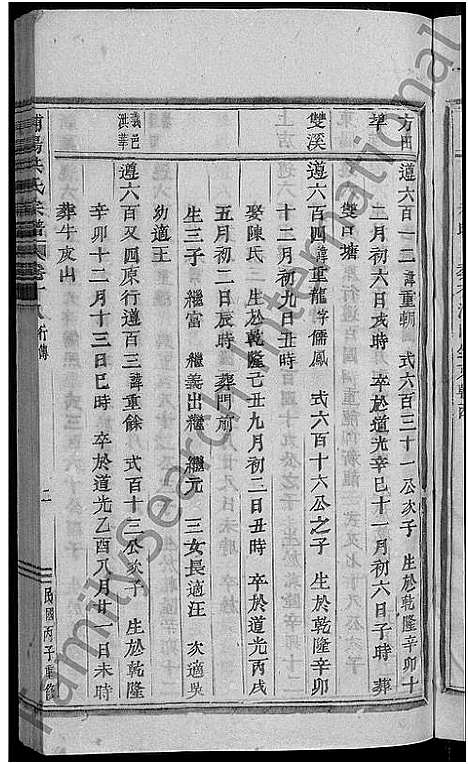 方田
遵六百一二 諱重朝 式六百三十一公次子 生於乾隆辛卯十
二月初六日戌時 卒於道光辛巳十一月初六日子時 葬
雙口塘
雙溪
遵六百四 諱重龍 字儒鳳 式六百十六公之子 生於乾隆辛卯
十二月初九日丑時
娶陳氏 生於乾隆己丑九月初二日丑時 卒於道光丙戌
五月初二日辰時 葬門前
生三子 繼富 繼義出繼 繼元 三女長適汪 次適吳
幼適王
義邑
洪華
遵六百又四原行道百三 諱重餘 式百十三公次子 生於乾隆
辛卯十二月十三日巳時 卒於道光乙酉八月廿一日未時
葬牛皮山
浦陽洪氏宗譜 卷十八 行傳
二
民國丙子重修
FamilySearch International